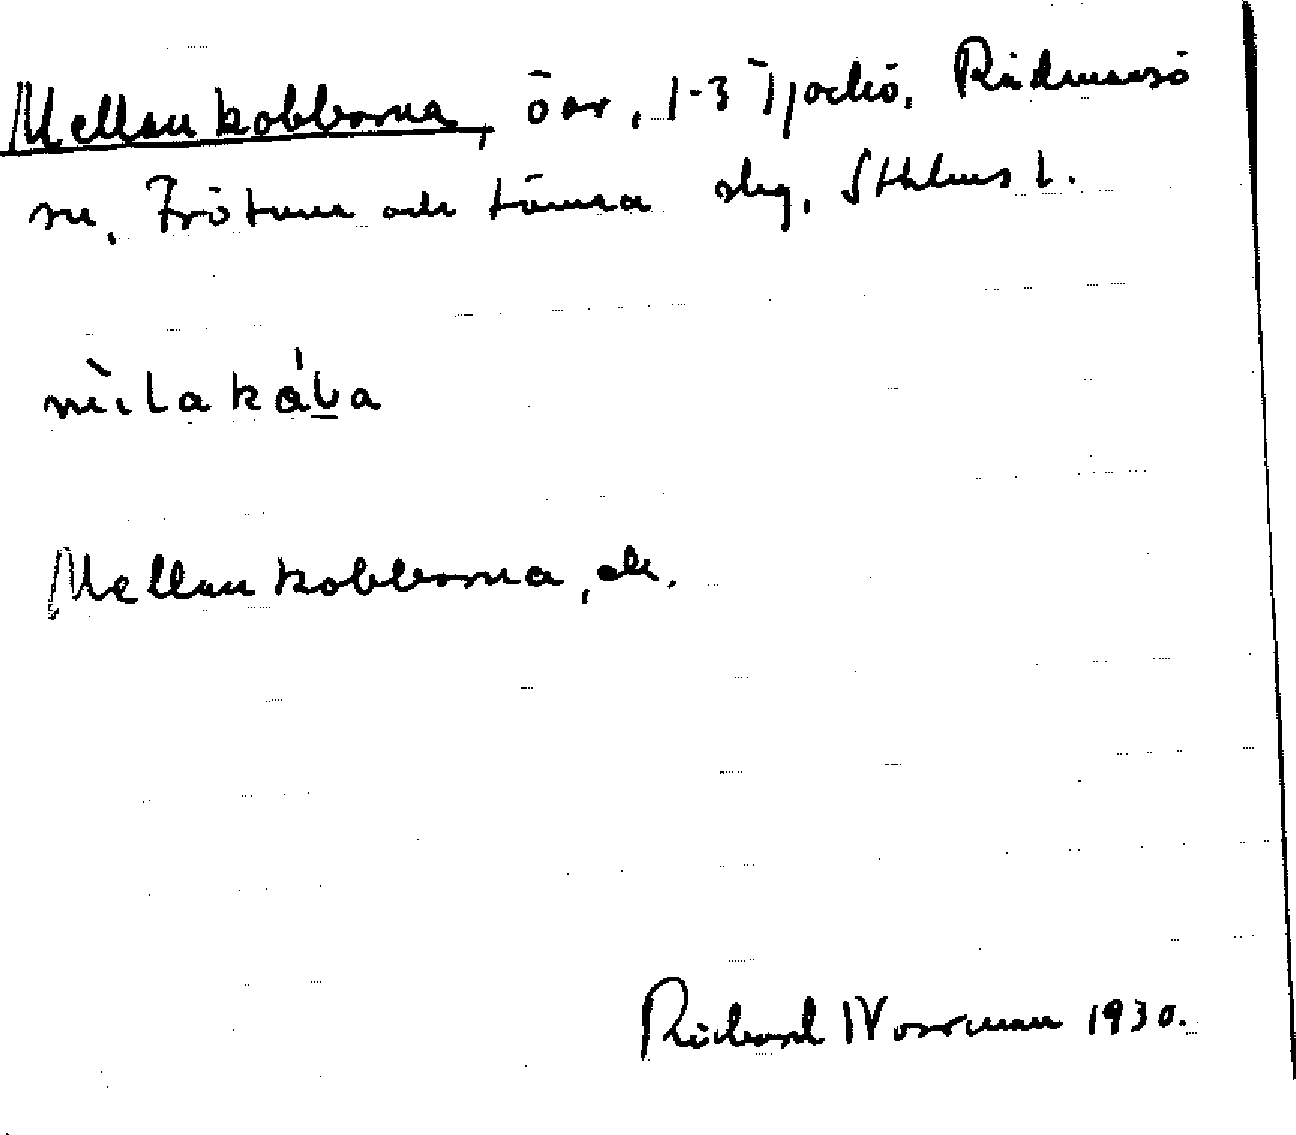 Mellankobbarna, öar, 1-3 Tjockö, Rådmansö
sn, Frötuna och Länna slg, Sthlms l.
Mellankobbarna, ek.
Richard Norrman 1930.